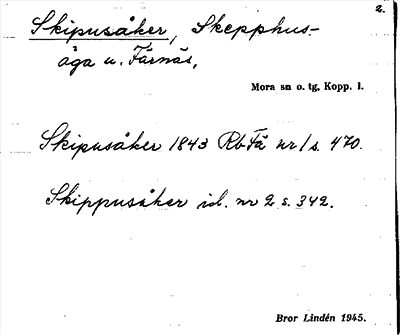 2.
Skipusåker, Skepphus-
åga u. Färnäs,
Mora sn o. tg, Kopp. l.
Skipusåker 1843 Rb Fä nr 1 s. 470.
Skippusåker id. nr 2 s. 342.
Bror Lindén 1945.